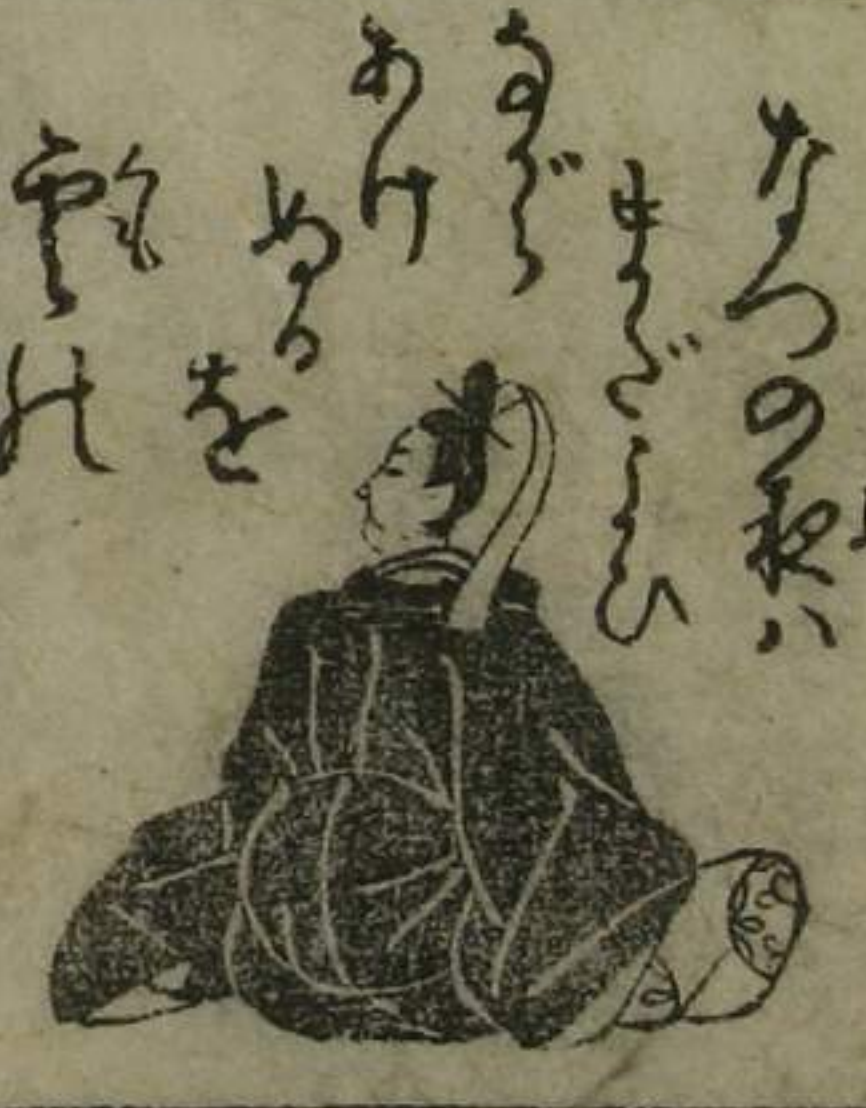 なつの夜ハ
まだよひ
ながら
あけ
ぬる
を
雲の
くも